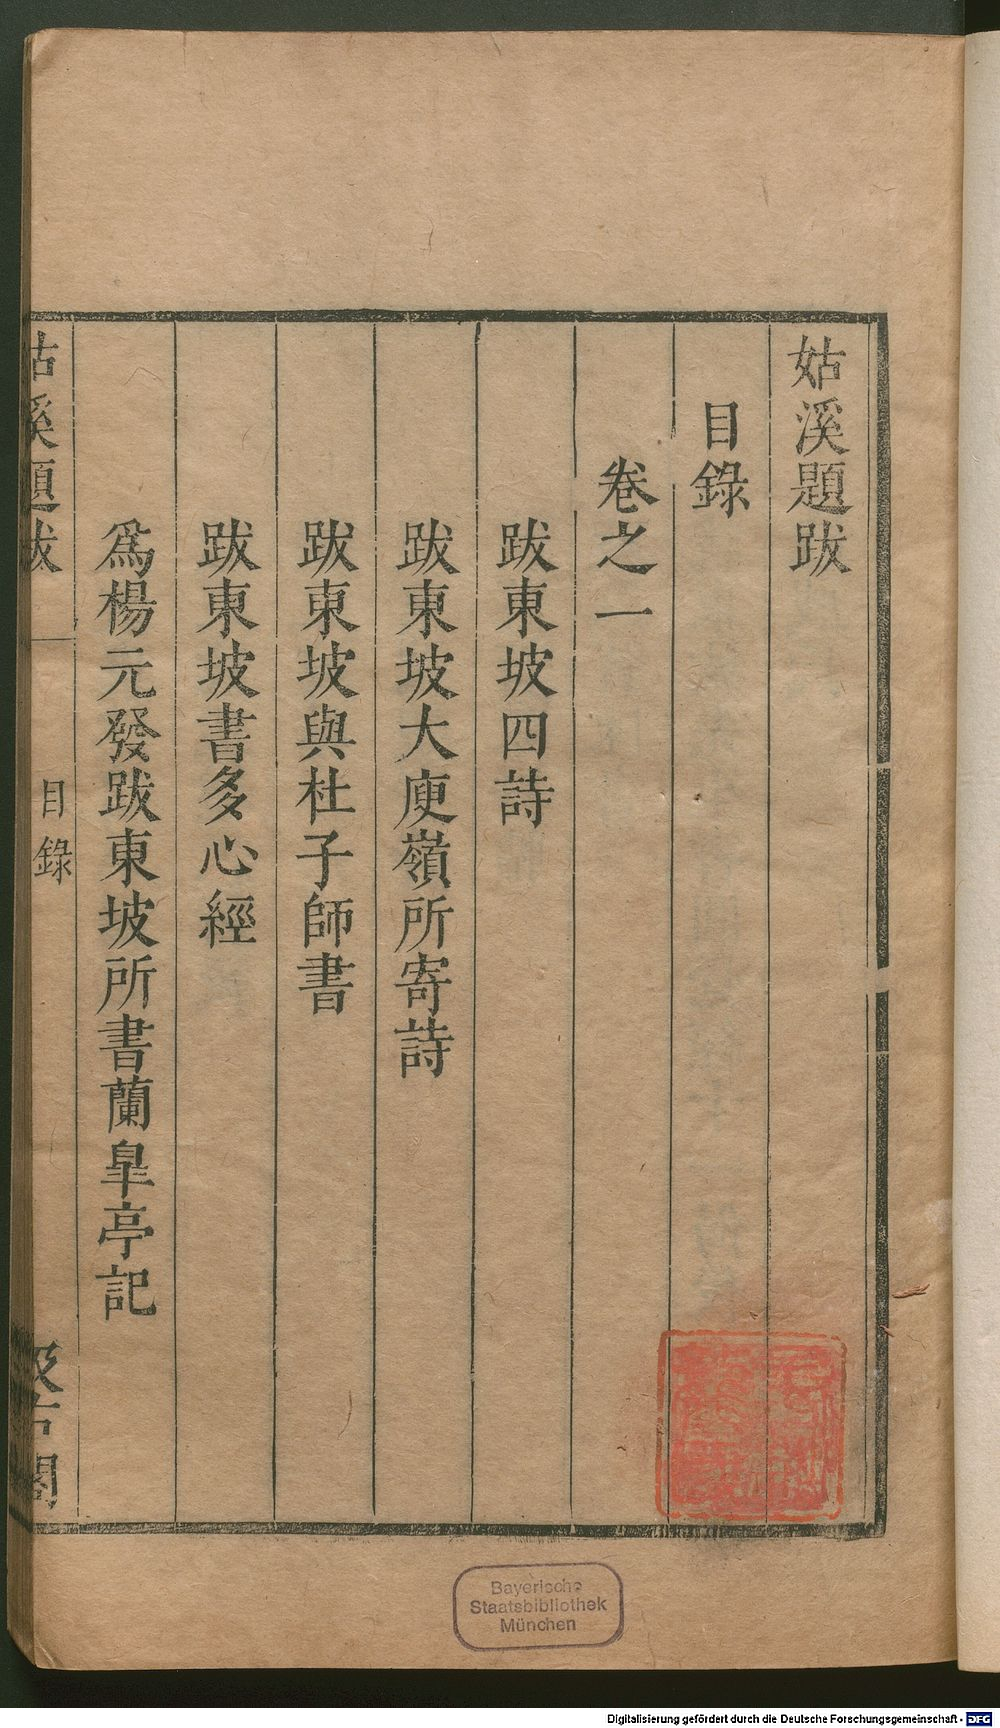 姑溪題跋
目錄
卷之一
跋東坡四詩
跋東坡大庾嶺所寄詩
跋東坡與杜子師書
跋東坡書多心經
爲楊元發跋東坡所書蘭皐亭記
姑溪題跋
目錄
汲古閣
Bayerische
Staatsbibliothek
München
Digitalisierung gefördert durch die Deutsche Forschungsgemeinschaft - DFG